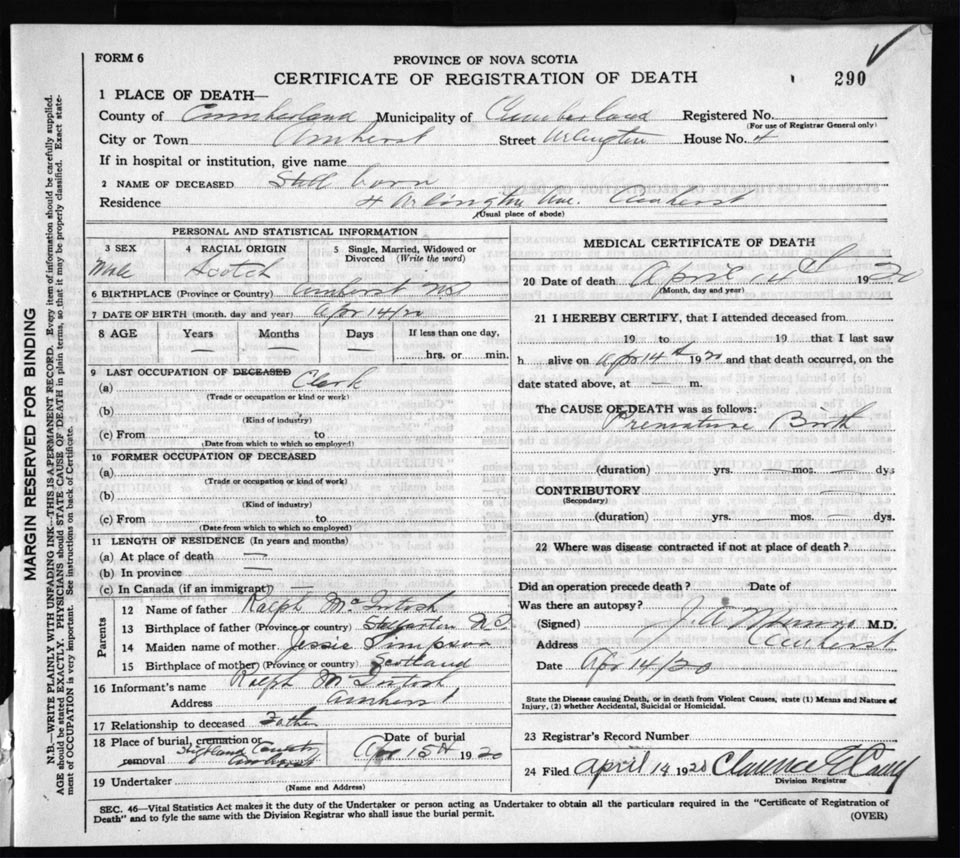 FORM 6
PROVINCE OF NOVA SCOTIA
CERTIFICATE OF REGISTRATION OF DEATH 290
1 PLACE OF DEATH—
County of Cumberland Municipality of Cumberland Registered No.
(For use of Registrar General only)
City or Town Amherst Street Arlington House No. 4
If in hospital or institution, give name
2 NAME OF DECEASED Still born
Residence 4 Arlington Ave. Amherst
(Usual place of abode)
PERSONAL AND STATISTICAL INFORMATION
3 SEX 4 RACIAL ORIGIN 5 Single, Married, Widowed or
Divorced (Write the word)
Male Scotch
6 BIRTHPLACE (Province or Country) Amherst N.S
7 DATE OF BIRTH (month, day and year) Apr 14/20
8 AGE Years Months Days If less than one day,
— — — hrs. or min.
9 LAST OCCUPATION OF DECEASED
(a) Clerk
(Trade or occupation or kind or work)
(b)
(Kind of industry)
(c) From to
(Date from which to which so employed)
10 FORMER OCCUPATION OF DECEASED
(a)
(Trade or occupation or kind or work)
(b)
(Kind of industry)
(c) From to
(Date from which to which so employed)
11 LENGTH OF RESIDENCE (In years and months)
(a) At place of death —
(b) In province —
(c) In Canada (if an immigrant) —
Parents
12 Name of father Ralph McIntosh
13 Birthplace of father (Province or country) Stellarton N.S.
14 Maiden name of mother Jessie Simpson
15 Birthplace of mother (Province or country) Scotland
16 Informant's name Ralph McIntosh
Address Amherst
17 Relationship to deceased Father
18 Place of burial, cremation or Date of burial
removal Highland Amherst Apr 15th 1920
19 Undertaker
(Name and Address)
MEDICAL CERTIFICATE OF DEATH
20 Date of death April 14th 1920
(Month, day and year)
21 I HEREBY CERTIFY, that I attended deceased from
19 to 19 that I last saw
h alive on Apr 14th 1920 and that death occurred, on the
date stated above, at — m.
The CAUSE OF DEATH was as follows:
Premature Birth
(duration) yrs. — mos. — dys
CONTRIBUTORY —
(Secondary)
(duration) yrs. — mos. — dys.
22 Where was disease contracted if not at place of death?
Did an operation precede death? Date of
Was there an autopsy?
(Signed) J. A. Munro M.D.
Address Amherst
Date Apr 14/20
State the Disease causing Death, or in death from Violent Causes, state (1) Means and Nature of
Injury, (2) whether Accidental, Suicidal or Homicidal.
23 Registrar's Record Number
24 Filed April 14 1920 Clarence E
Division Registrar
SEC. 46—Vital Statistics Act makes it the duty of the Undertaker or person acting as Undertaker to obtain all the particulars required in the "Certificate of Registration of
Death" and to fyle the same with the Division Registrar who shall issue the burial permit. (OVER)
MARGIN RESERVED FOR BINDING
N.B.—WRITE PLAINLY WITH UNFADING INK—THIS IS A PERMANENT RECORD. Every item of information should be carefully supplied.
AGE should be stated EXACTLY. PHYSICIANS should STATE CAUSE OF DEATH in plain terms, so that it may be properly classified. Exact state-
ment of OCCUPATION is very important. See instructions on back of Certificate.